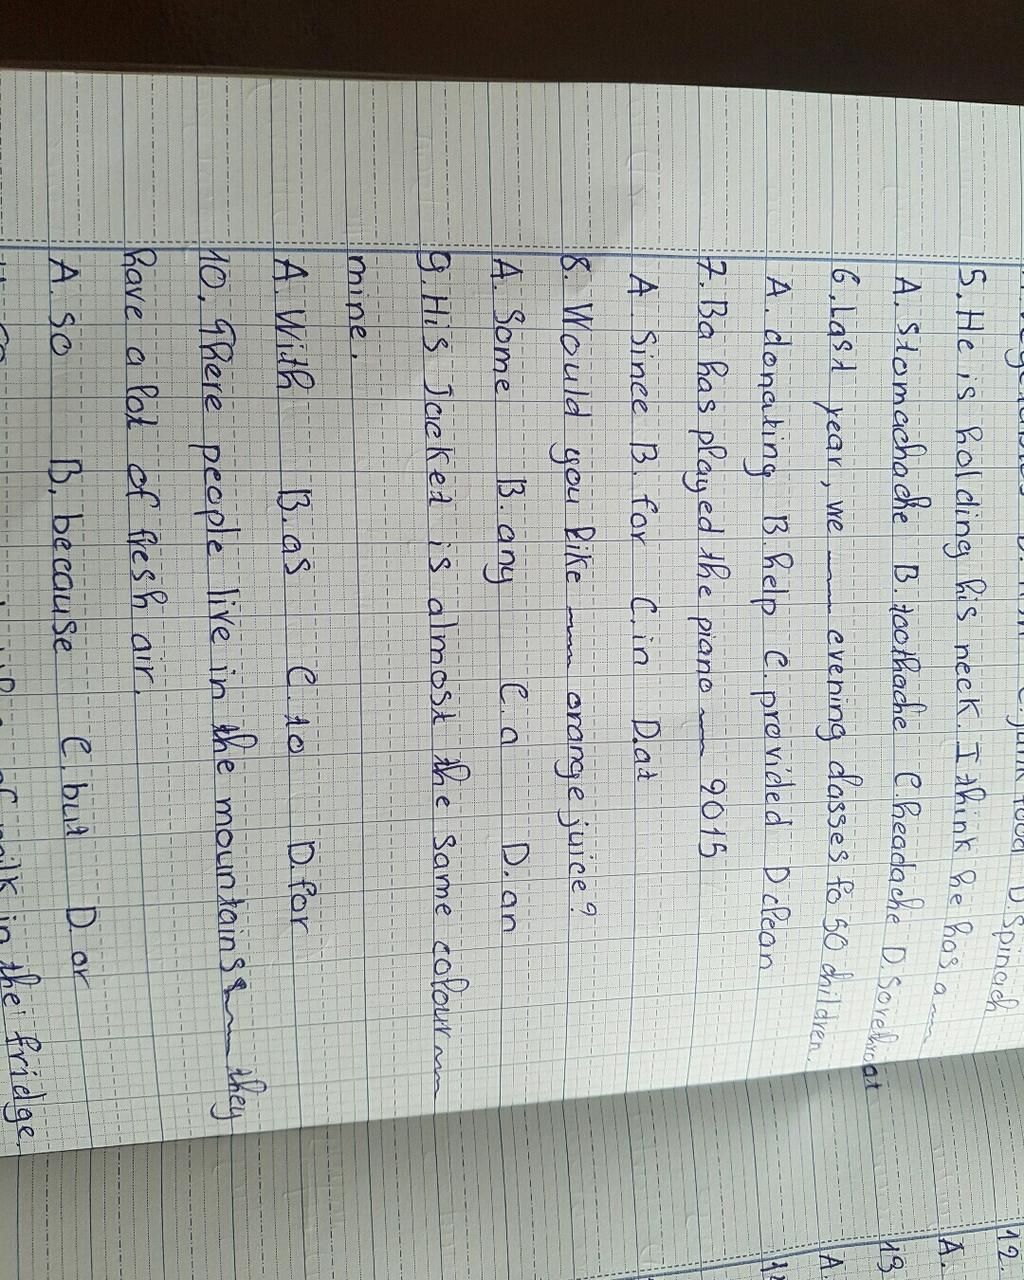 junk food D Spinach
5. He is holding his neck. I think he has a
A. Stomachache B. toothache C. headache D. Sorethroat
6. Last year, we evening classes to 50 children.
A. donating B. help C. provided D clean
7. Ba has played the piano 2015
A. Since B. for C. in D. at
8. Would you like orange juice?
A. Some B. any C. a D. an
9. His Jacked is almost the same colour
mine.
A. With B. as C. to D. for
10. There people live in the mountains they
have a lot of fresh air.
A. so B. because C. but D. or
milk in the fridge.
12.
A.
13
A